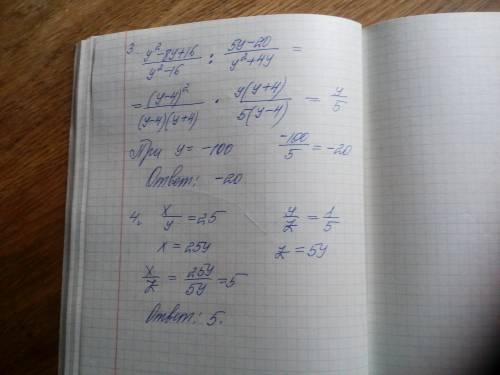 3. (y²-8y+16)/(y²-16) : (5y-20)/(y²+4y) =
= (y-4)²/((y-4)(y+4)) · y(y+4)/(5(y-4)) = y/5
При y = -100 -100/5 = -20
Ответ: -20
4. x/y = 25 y/z = 1/5
x = 25y z = 5y
x/z = 25y/5y = 5
Ответ: 5.